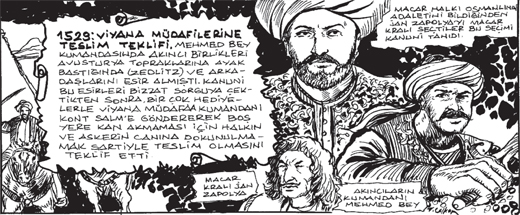 1529: VİYANA MÜDAFİLERİNE
TESLİM TEKLİFİ, MEHMED BEY
KUMANDASINDA AKINCI BİRLİKLERİ
AVUSTURYA TOPRAKLARINA AYAK
BASTIĞINDA (ZEDLİTZ) VE ARKA-
DAŞLARINI ESİR ALMIŞTI. KANUNİ
BU ESİRLERİ BİZZAT SORGUYA ÇEK-
TİKTEN SONRA, BİR ÇOK HEDİYE-
LERLE VİYANA MÜDAFAA KUMANDANI
KONT SALM'E GÖNDEREREK BOŞ
YERE KAN AKMAMASI İÇİN HALKIN
VE ASKERİN CANINA DOKUNULMA-
MAK ŞARTİYLE TESLİM OLMASINI
TEKLİF ETTİ
MACAR
KRALI JAN
ZAPOLYA
MACAR HALKI OSMANLININ
ADALETİNİ BİLDİĞİNDEN
JAN ZAPOLYA'YI MACAR
KRALI SEÇTİLER BU SEÇİMİ
KANUNİ TANIDI.
AKINCILARIN
KUMANDANI
MEHMED BEY